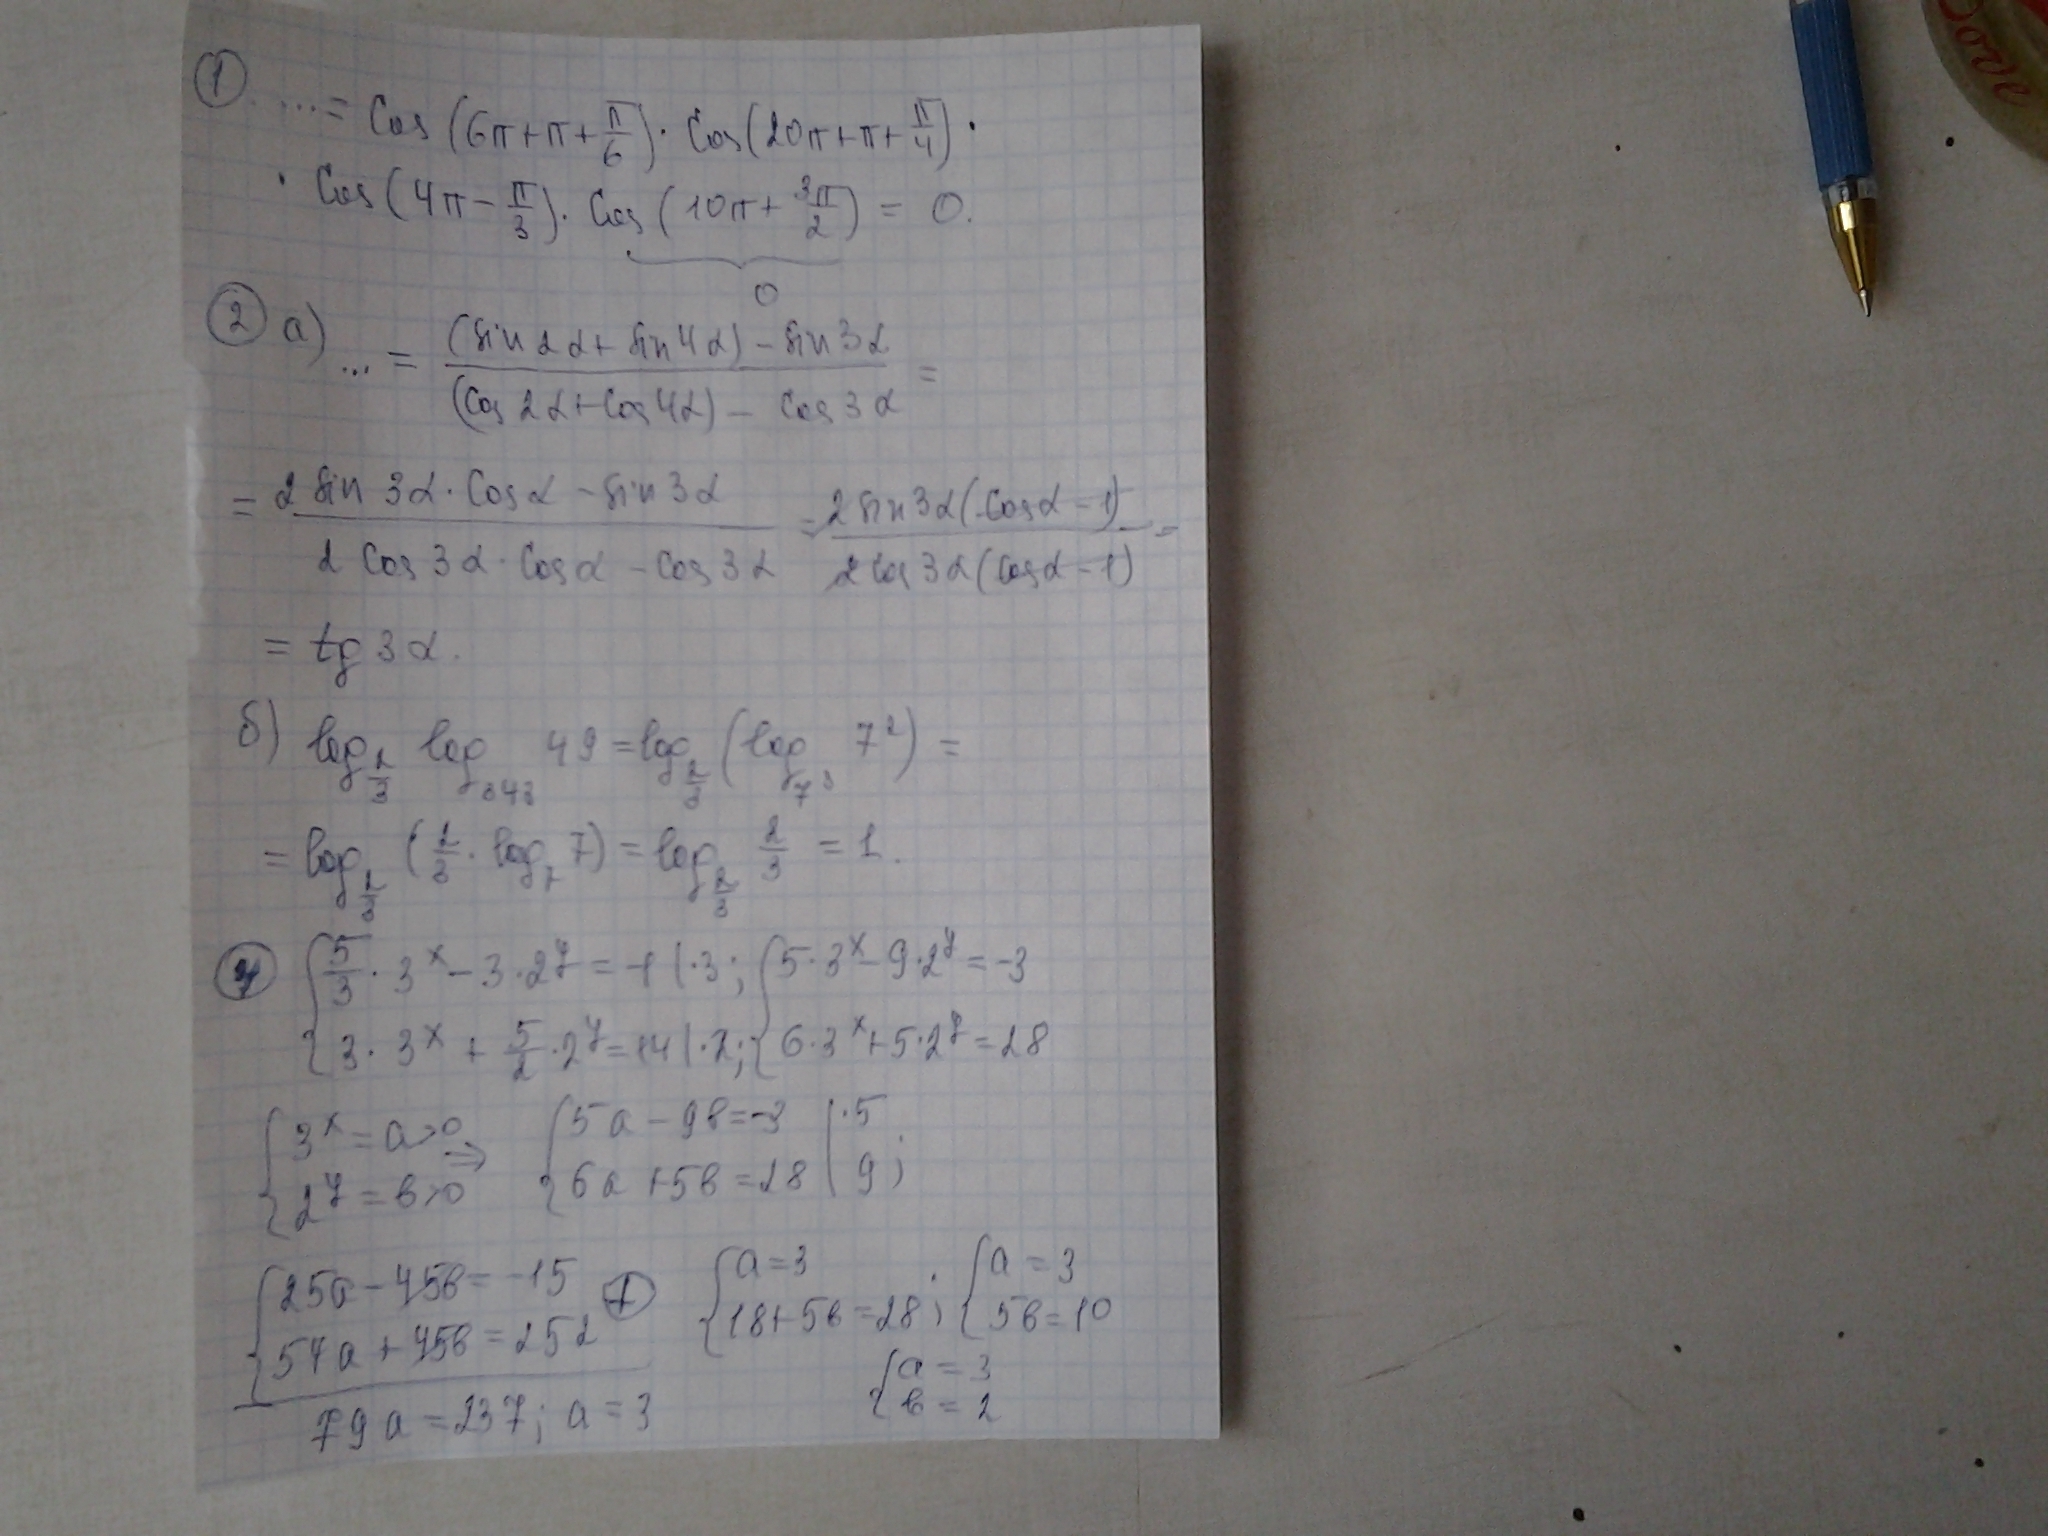 1 ... = Cos(6π+π+π/6)·Cos(20π+π+π/4)·
·Cos(4π-π/3)·Cos(10π+3π/2) = 0.
0
2 а) ... = (sin2α+sin4α)-sin3α / (Cos2α+Cos4α)-cos3α =
= 2sin3α·Cosα-sin3α / 2Cos3α·Cosα-cos3α = 2sin3α(Cosα-1) / 2cos3α(Cosα-1) =
= tg3α.
б) log_{2/3} log_{343} 49 = log_{2/3}(log_{7^3} 7^2) =
= log_{2/3}(2/3·log_7 7) = log_{2/3} 2/3 = 1.
4 {5/3·3^x-3·2^y=-1 |·3; {5·3^x-9·2^y=-3
{3·3^x+5/2·2^y=14 |·2; {6·3^x+5·2^y=28
{3^x=a>0 ⇒ {5a-9b=-3 |·5
{2^y=b>0 {6a+5b=28 | 9;
{25a-45b=-15 + {a=3 ; {a=3
{54a+45b=252 {18+5b=28 {5b=10
{a=3
79a=237; a=3 {b=2
Dove